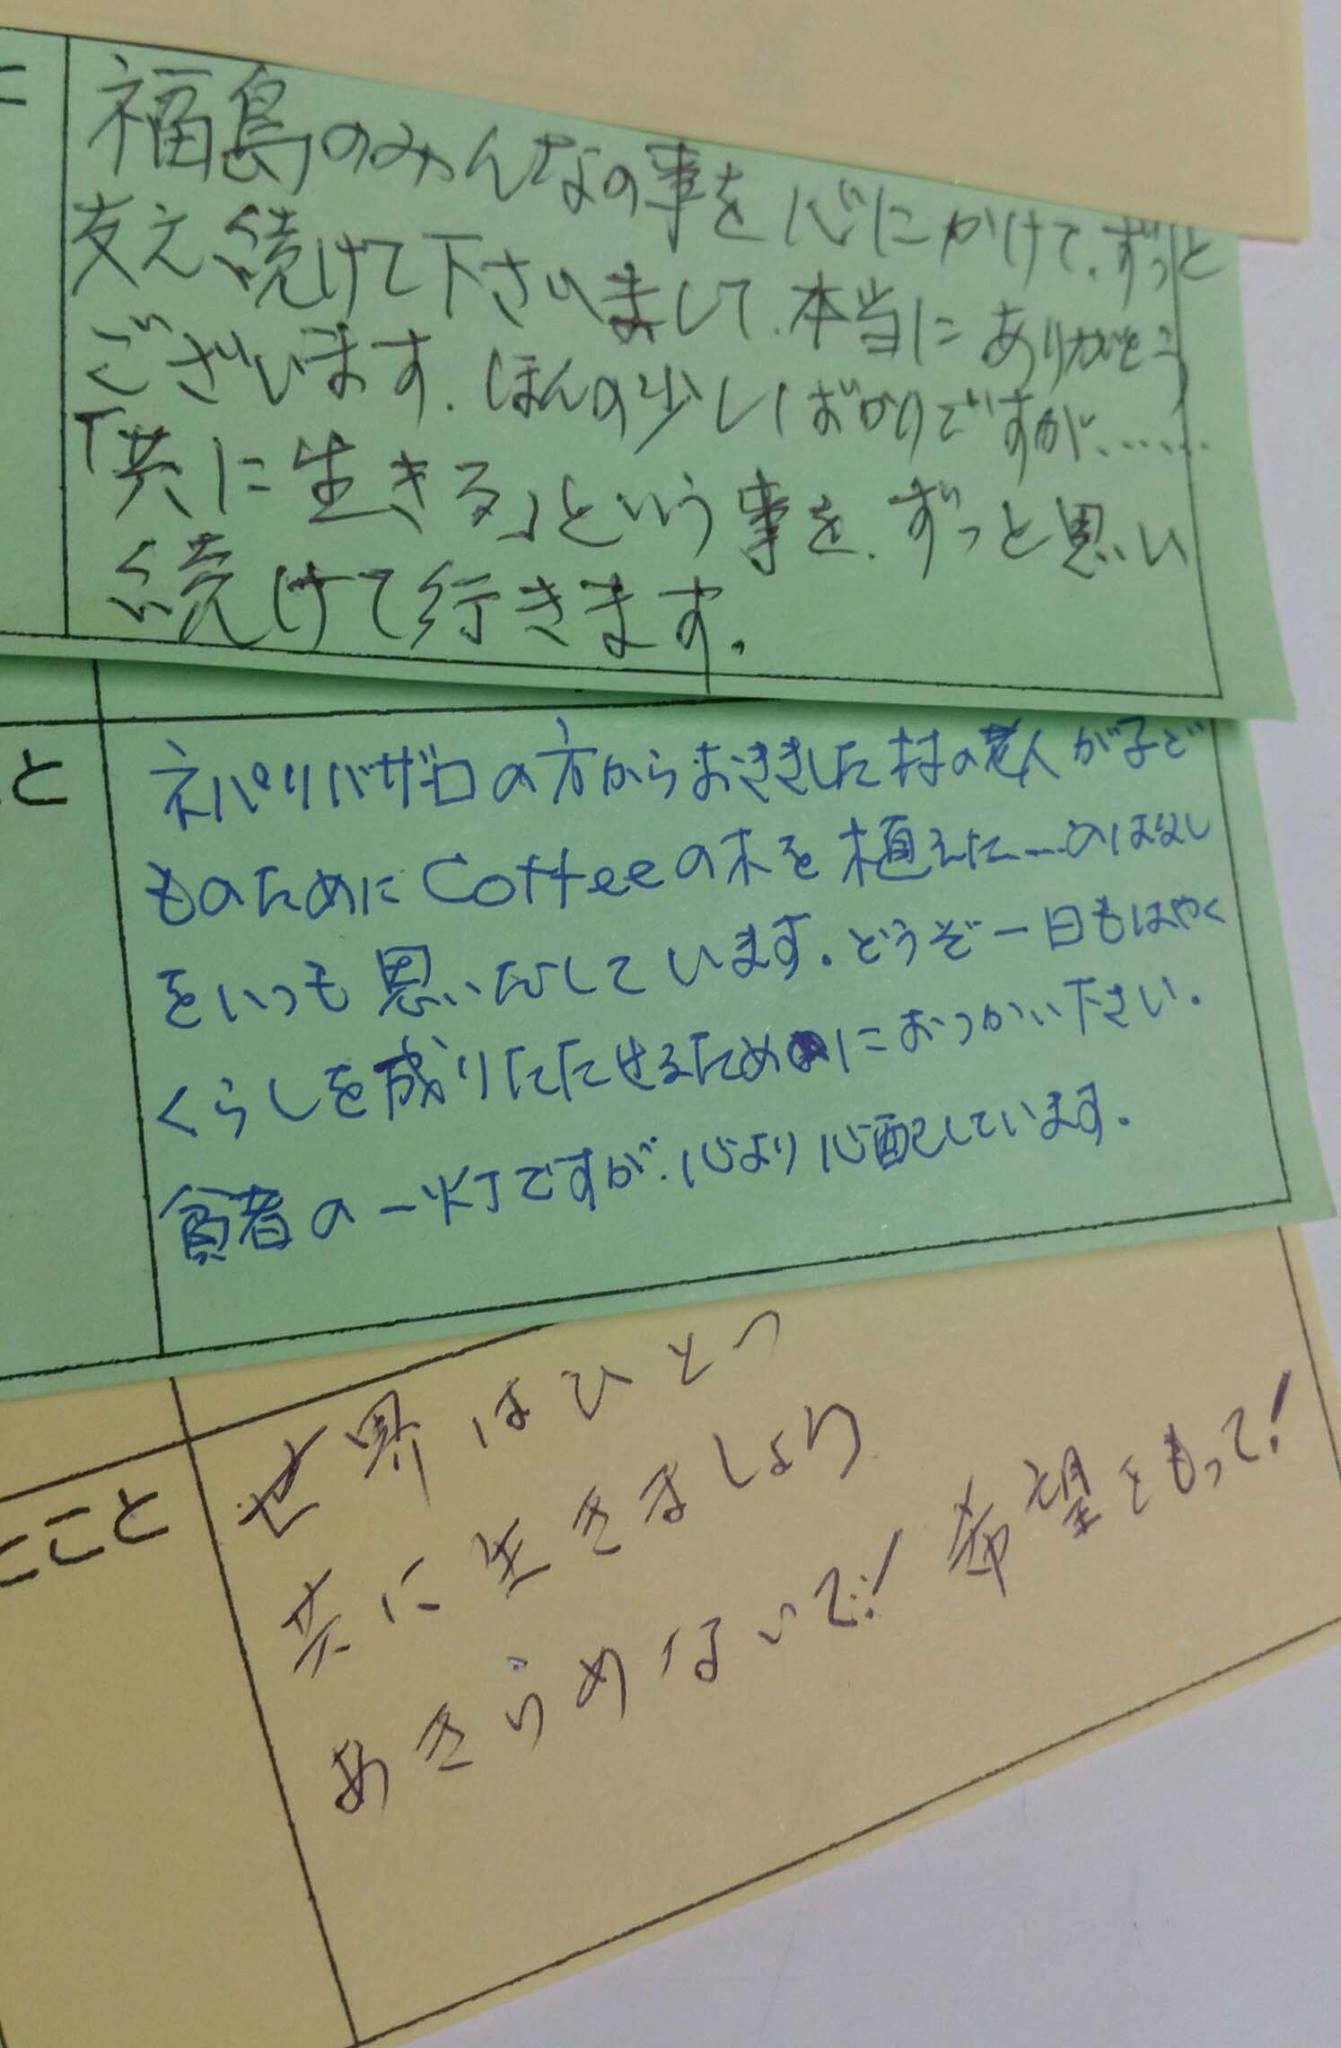 に
福島のみんなの事を心にかけて、ずっと
支え続けて下さいまして、本当にありがとう
ございます。ほんの少しばかりですが、……
「共に生きる」という事を、ずっと思い
続けて行きます。
と
ネパリバザロの方からおききした村の老人が子ど
ものためにCoffeeの木を植えた…のはなし
をいつも思いだしています。どうぞ一日もはやく
くらしを成りたたせるためにおつかい下さい。
貧者の一灯ですが、心より心配しています。
こと
世界はひとつ
共に生きましょう
あきらめないで! 希望をもって!